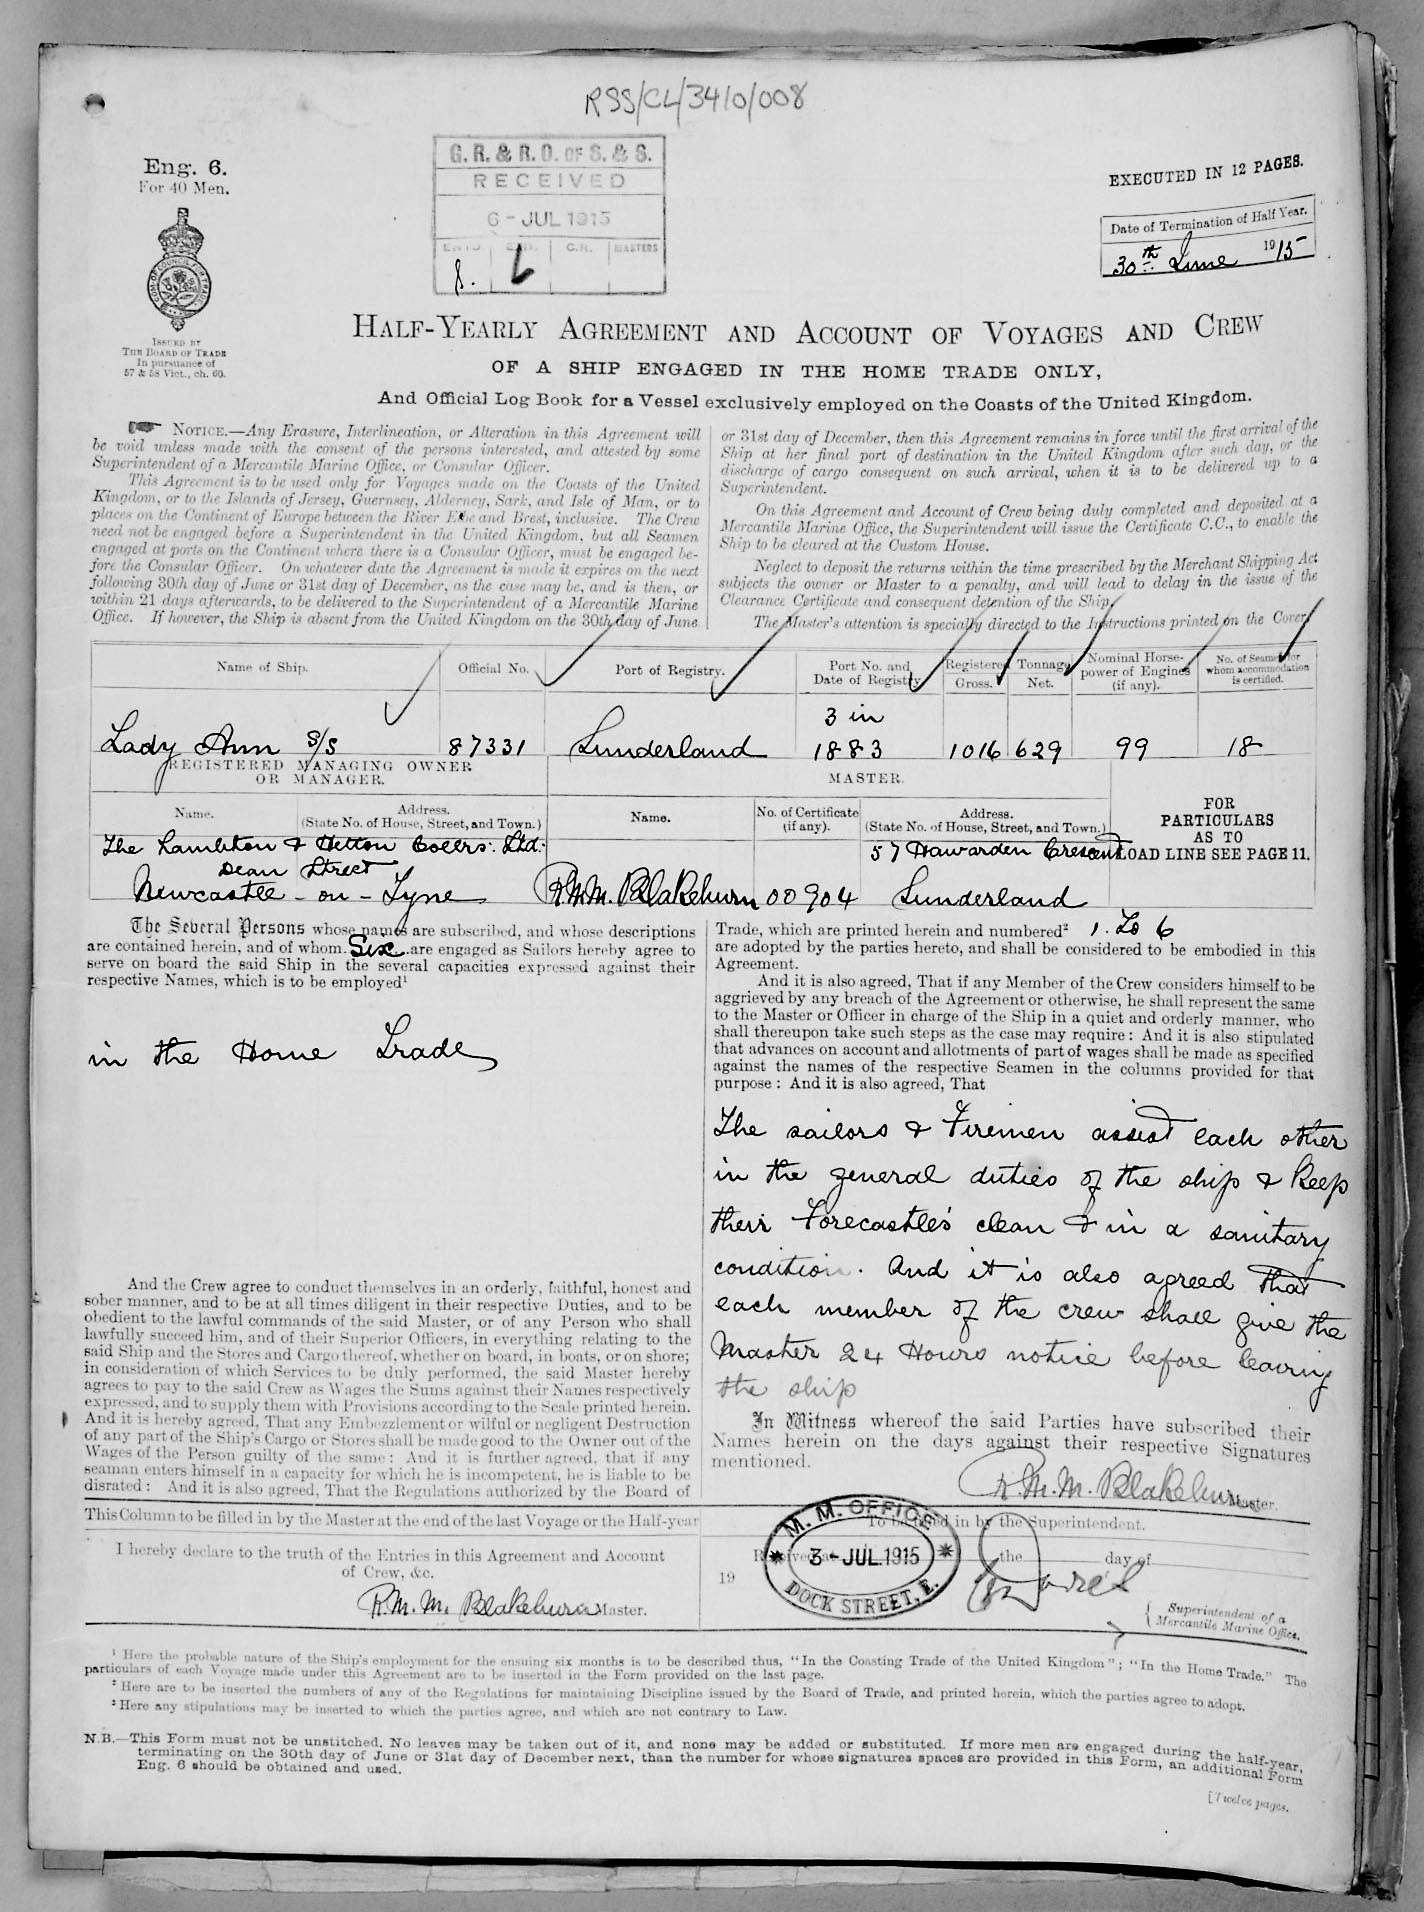 RSS/CL/3410/008
Eng. 6.
For 40 Men.
ISSUED BY
THE BOARD OF TRADE
In pursuance of
57 & 58 Vict., ch. 60.
G. R. & R. O. OF S. & S.
RECEIVED
6 - JUL 1915
C.R. MASTERS
8.
EXECUTED IN 12 PAGES.
Date of Termination of Half Year.
30th June 1915
HALF-YEARLY AGREEMENT AND ACCOUNT OF VOYAGES AND CREW
OF A SHIP ENGAGED IN THE HOME TRADE ONLY,
And Official Log Book for a Vessel exclusively employed on the Coasts of the United Kingdom.
NOTICE.—Any Erasure, Interlineation, or Alteration in this Agreement will
be void unless made with the consent of the persons interested, and attested by some
Superintendent of a Mercantile Marine Office, or Consular Officer.
This Agreement is to be used only for Voyages made on the Coasts of the United
Kingdom, or to the Islands of Jersey, Guernsey, Alderney, Sark, and Isle of Man, or to
places on the Continent of Europe between the River Elbe and Brest, inclusive. The Crew
need not be engaged before a Superintendent in the United Kingdom, but all Seamen
engaged at ports on the Continent where there is a Consular Officer, must be engaged be-
fore the Consular Officer. On whatever date the Agreement is made it expires on the next
following 30th day of June or 31st day of December, as the case may be, and is then, or
within 21 days afterwards, to be delivered to the Superintendent of a Mercantile Marine
Office. If however, the Ship is absent from the United Kingdom on the 30th day of June
or 31st day of December, then this Agreement remains in force until the first arrival of the
Ship at her final port of destination in the United Kingdom after such day, or the
discharge of cargo consequent on such arrival, when it is to be delivered up to a
Superintendent.
On this Agreement and Account of Crew being duly completed and deposited at a
Mercantile Marine Office, the Superintendent will issue the Certificate C.C., to enable the
Ship to be cleared at the Custom House.
Neglect to deposit the returns within the time prescribed by the Merchant Shipping Act
subjects the owner or Master to a penalty, and will lead to delay in the issue of the
Clearance Certificate and consequent detention of the Ship.
The Master's attention is specially directed to the Instructions printed on the Cover.
Name of Ship. Official No. Port of Registry. Port No. and Date of Registry. Registered Tonnage Gross. Net. Nominal Horse-power of Engines (if any). No. of Seamen for whom accommodation is certified.
Lady Ann S/S 87331 Sunderland 3 in 1883 1016 629 99 18
REGISTERED MANAGING OWNER
OR MANAGER.
MASTER.
Name. Address. (State No. of House, Street, and Town.) Name. No. of Certificate (if any). Address. (State No. of House, Street, and Town.)
FOR
PARTICULARS
AS TO
LOAD LINE SEE PAGE 11.
The Lambton & Hetton Collrs: Ltd:
Dean Street
Newcastle - on - Tyne
R.M.M. Blakeburn 00904
57 Hawarden Crescent
Sunderland
The Several Persons whose names are subscribed, and whose descriptions
are contained herein, and of whom Six are engaged as Sailors hereby agree to
serve on board the said Ship in the several capacities expressed against their
respective Names, which is to be employed¹
in the Home Trade
And the Crew agree to conduct themselves in an orderly, faithful, honest and
sober manner, and to be at all times diligent in their respective Duties, and to be
obedient to the lawful commands of the said Master, or of any Person who shall
lawfully succeed him, and of their Superior Officers, in everything relating to the
said Ship and the Stores and Cargo thereof, whether on board, in boats, or on shore;
in consideration of which Services to be duly performed, the said Master hereby
agrees to pay to the said Crew as Wages the Sums against their Names respectively
expressed, and to supply them with Provisions according to the Scale printed herein.
And it is hereby agreed, That any Embezzlement or wilful or negligent Destruction
of any part of the Ship's Cargo or Stores shall be made good to the Owner out of the
Wages of the Person guilty of the same: And it is further agreed, that if any
seaman enters himself in a capacity for which he is incompetent, he is liable to be
disrated: And it is also agreed, That the Regulations authorized by the Board of
Trade, which are printed herein and numbered² 1. to 6
are adopted by the parties hereto, and shall be considered to be embodied in this
Agreement.
And it is also agreed, That if any Member of the Crew considers himself to be
aggrieved by any breach of the Agreement or otherwise, he shall represent the same
to the Master or Officer in charge of the Ship in a quiet and orderly manner, who
shall thereupon take such steps as the case may require: And it is also stipulated
that advances on account and allotments of part of wages shall be made as specified
against the names of the respective Seamen in the columns provided for that
purpose: And it is also agreed, That
The sailors & Firemen assist each other
in the general duties of the ship & keep
their Forecastles' clean & in a sanitary
condition. And it is also agreed that
each member of the crew shall give the
Master 24 Hours notice before leaving
the ship
In Witness whereof the said Parties have subscribed their
Names herein on the days against their respective Signatures
mentioned.
R.M.M. Blakeburn Master.
This Column to be filled in by the Master at the end of the last Voyage or the Half-year
I hereby declare to the truth of the Entries in this Agreement and Account
of Crew, &c.
R.M.M. Blakeburn Master.
To be filled in by the Superintendent.
Received at the day of
19
M. M. OFFICE
3 - JUL. 1915
DOCK STREET, E.
Superintendent of a
Mercantile Marine Office.
¹ Here the probable nature of the Ship's employment for the ensuing six months is to be described thus, "In the Coasting Trade of the United Kingdom"; "In the Home Trade." The
particulars of each Voyage made under this Agreement are to be inserted in the Form provided on the last page.
² Here are to be inserted the numbers of any of the Regulations for maintaining Discipline issued by the Board of Trade, and printed herein, which the parties agree to adopt.
³ Here any stipulations may be inserted to which the parties agree, and which are not contrary to Law.
N.B.—This Form must not be unstitched. No leaves may be taken out of it, and none may be added or substituted. If more men are engaged during the half-year,
terminating on the 30th day of June or 31st day of December next, than the number for whose signatures spaces are provided in this Form, an additional Form
Eng. 6 should be obtained and used.
[Twelve pages.